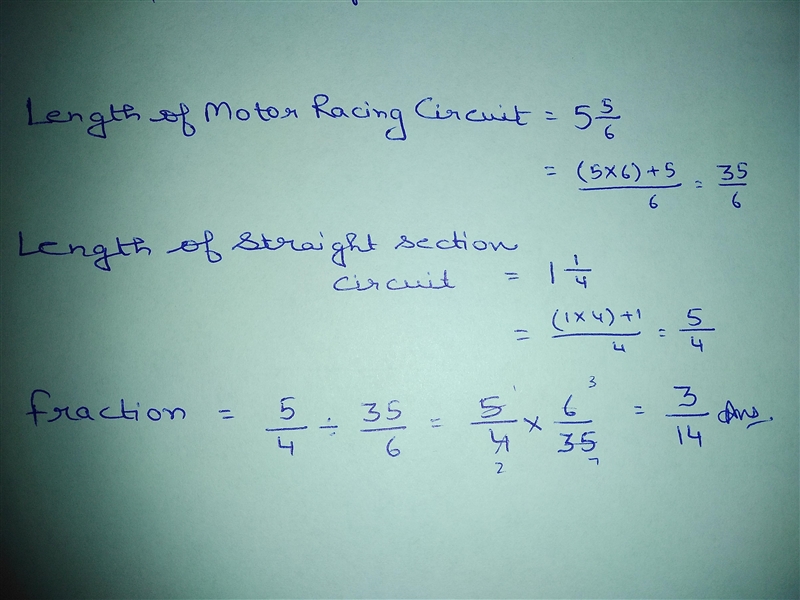 Length of Motor Racing Circuit = 5 5/6
= (5×6)+5/6 = 35/6
Length of straight section
circuit = 1 1/4
= (1×4)+1/4 = 5/4
fraction = 5/4 ÷ 35/6 = 5/4 × 6/35 = 3/14 Ans.